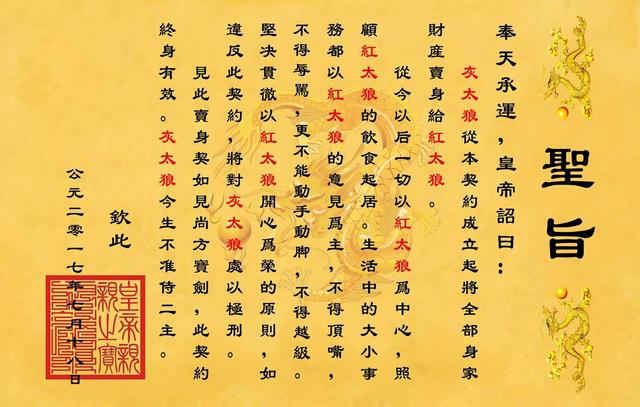 聖旨
奉天承運，皇帝詔曰：
灰太狼從本契約成立起將全部身家
財産賣身給紅太狼。
從今以后一切以紅太狼爲中心，照
顧紅太狼的飲食起居。生活中的大小事
務都以紅太狼的意見爲主，不得頂嘴，
不得辱駡，更不能動手動脚，不得越級。
堅决貫徹以紅太狼開心爲榮的原則，如
違反此契約，將對灰太狼處以極刑。
見此賣身契如見尚方寶劍，此契約
終身有效。灰太狼今生不准侍二主。
欽此
公元二零一七年七月十八日
皇帝親
親之寶